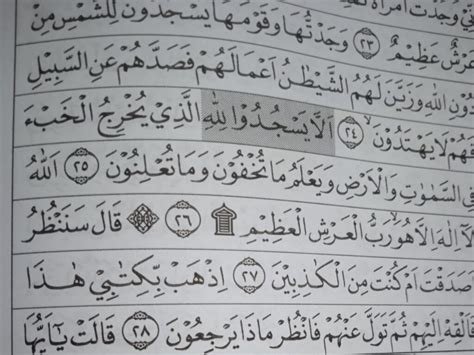 وَجَدْتُ امْرَاَةً
عَرْشٌ عَظِيْمٌ ٢٣ وَجَدْتُّهَا وَقَوْمَهَا يَسْجُدُوْنَ لِلشَّمْسِ مِنْ
دُوْنِ اللّٰهِ وَزَيَّنَ لَهُمُ الشَّيْطٰنُ اَعْمَالَهُمْ فَصَدَّهُمْ عَنِ السَّبِيْلِ
فَهُمْ لَا يَهْتَدُوْنَۙ ٢٤ اَلَّا يَسْجُدُوْا لِلّٰهِ الَّذِيْ يُخْرِجُ الْخَبْءَ
فِى السَّمٰوٰتِ وَالْاَرْضِ وَيَعْلَمُ مَا تُخْفُوْنَ وَمَا تُعْلِنُوْنَ ٢٥ اَللّٰهُ
لَآ اِلٰهَ اِلَّا هُوَۙ رَبُّ الْعَرْشِ الْعَظِيْمِ ۩ ٢٦ ۞ قَالَ سَنَنْظُرُ
اَصَدَقْتَ اَمْ كُنْتَ مِنَ الْكٰذِبِيْنَ ٢٧ اِذْهَبْ بِّكِتٰبِيْ هٰذَا
فَاَلْقِهْ اِلَيْهِمْ ثُمَّ تَوَلَّ عَنْهُمْ فَانْظُرْ مَاذَا يَرْجِعُوْنَ ٢٨ قَالَتْ يٰٓاَيُّهَا